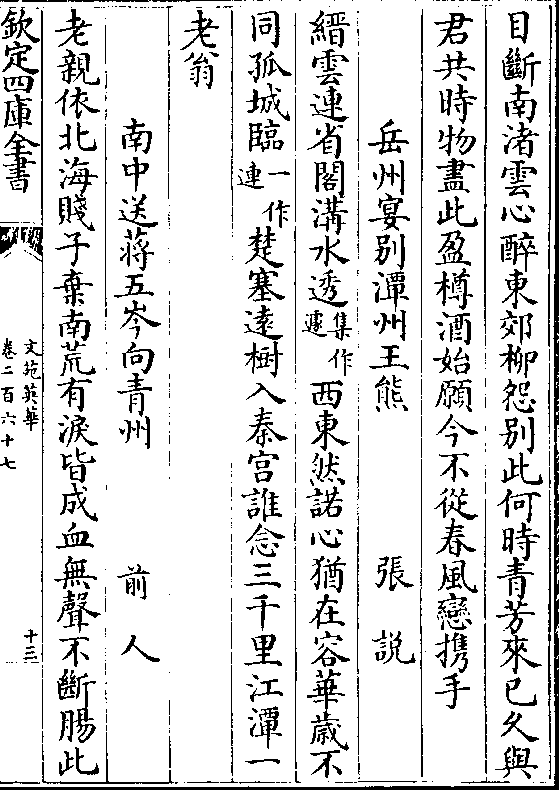 目斷南渚雲心醉東郊柳怨别此何時青芳來已久與
君共時物盡此盈樽酒始願今不從春風戀携手
岳州宴别潭州王熊 張説
縉雲連省閣溝水透集作遽西東然諾心猶在容華歲不
同孤城臨一作連楚塞逺樹入秦宫誰念三千里江潭一
老翁
南中送蔣五岑向青州 前人
老親依北海賤子棄南荒有淚皆成血無聲不斷腸此
欽定四庫全書
文苑英華
卷二百六十七
十三